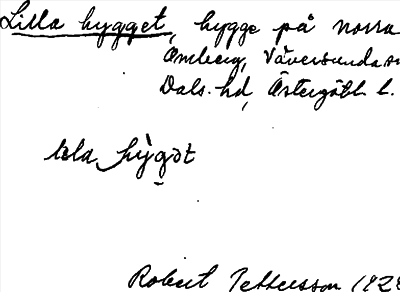 Lilla hygget, hygge på norra
Omberg, Väversunda sn
Dals hd, Östergötl. l.
hygöt
Robert Pettersson 192